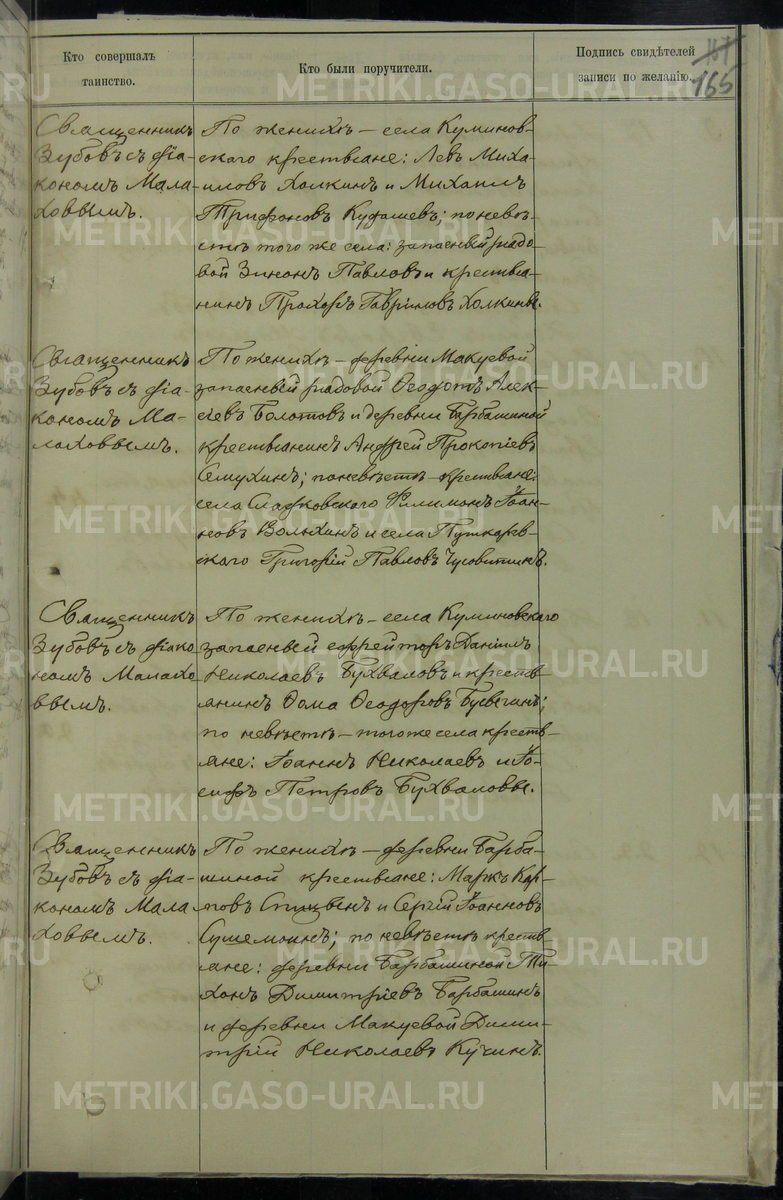 Кто совершалъ таинство.
Кто были поручители.
Подпись свидѣтелей записи по желанію.
165
Священникъ
Зубовъ съ діа-
кономъ Мала-
ховымъ.
По женихѣ – села Куминов-
скаго крестьяне: Левъ Миха-
иловъ Холкинъ и Михаилъ
Трифоновъ Кудашевъ; по невѣ-
стѣ того же села: запасный рядо-
вой Зинонъ Павловъ и крестья-
нинъ Прохоръ Гавриловъ Холкины.
Священникъ
Зубовъ съ діа-
кономъ Ма-
лаховымъ.
По женихѣ – деревни Макуевой
запасный рядовой Ѳеодотъ Алек-
сѣевъ Болотовъ и деревни Барбашиной
крестьянинъ Андрей Прокопіевъ
Семухинъ; по невѣстѣ – крестьяне:
села Сладковскаго Филимонъ Іоан-
новъ Волынинъ и села Пушкарев-
скаго Григорій Павловъ Чусовитинъ.
Священникъ
Зубовъ съ діако-
номъ Малахо-
вымъ.
По женихѣ – села Куминовскаго
запасный ефрейторъ Даніилъ
Николаевъ Бухваловъ и крестья-
янинъ Ѳома Ѳеодоровъ Бусыгинъ;
по невѣстѣ – того же села крестья-
яне: Іоаннъ Николаевъ и Іо-
сифъ Петровъ Бухваловы.
Священникъ
Зубовъ съ діа-
кономъ Мала-
ховымъ.
По женихѣ – деревни Барба-
шиной крестьяне: Маркъ Кар-
повъ Спицынъ и Сергій Іоанновъ
по невѣстѣ крестья-
яне: деревни Барбашиной Ти-
хонъ Димитріевъ Барбашинъ
и деревни Макуевой Дими-
трій Николаевъ Кучинъ.
METRIKI.GASO-URAL.RU